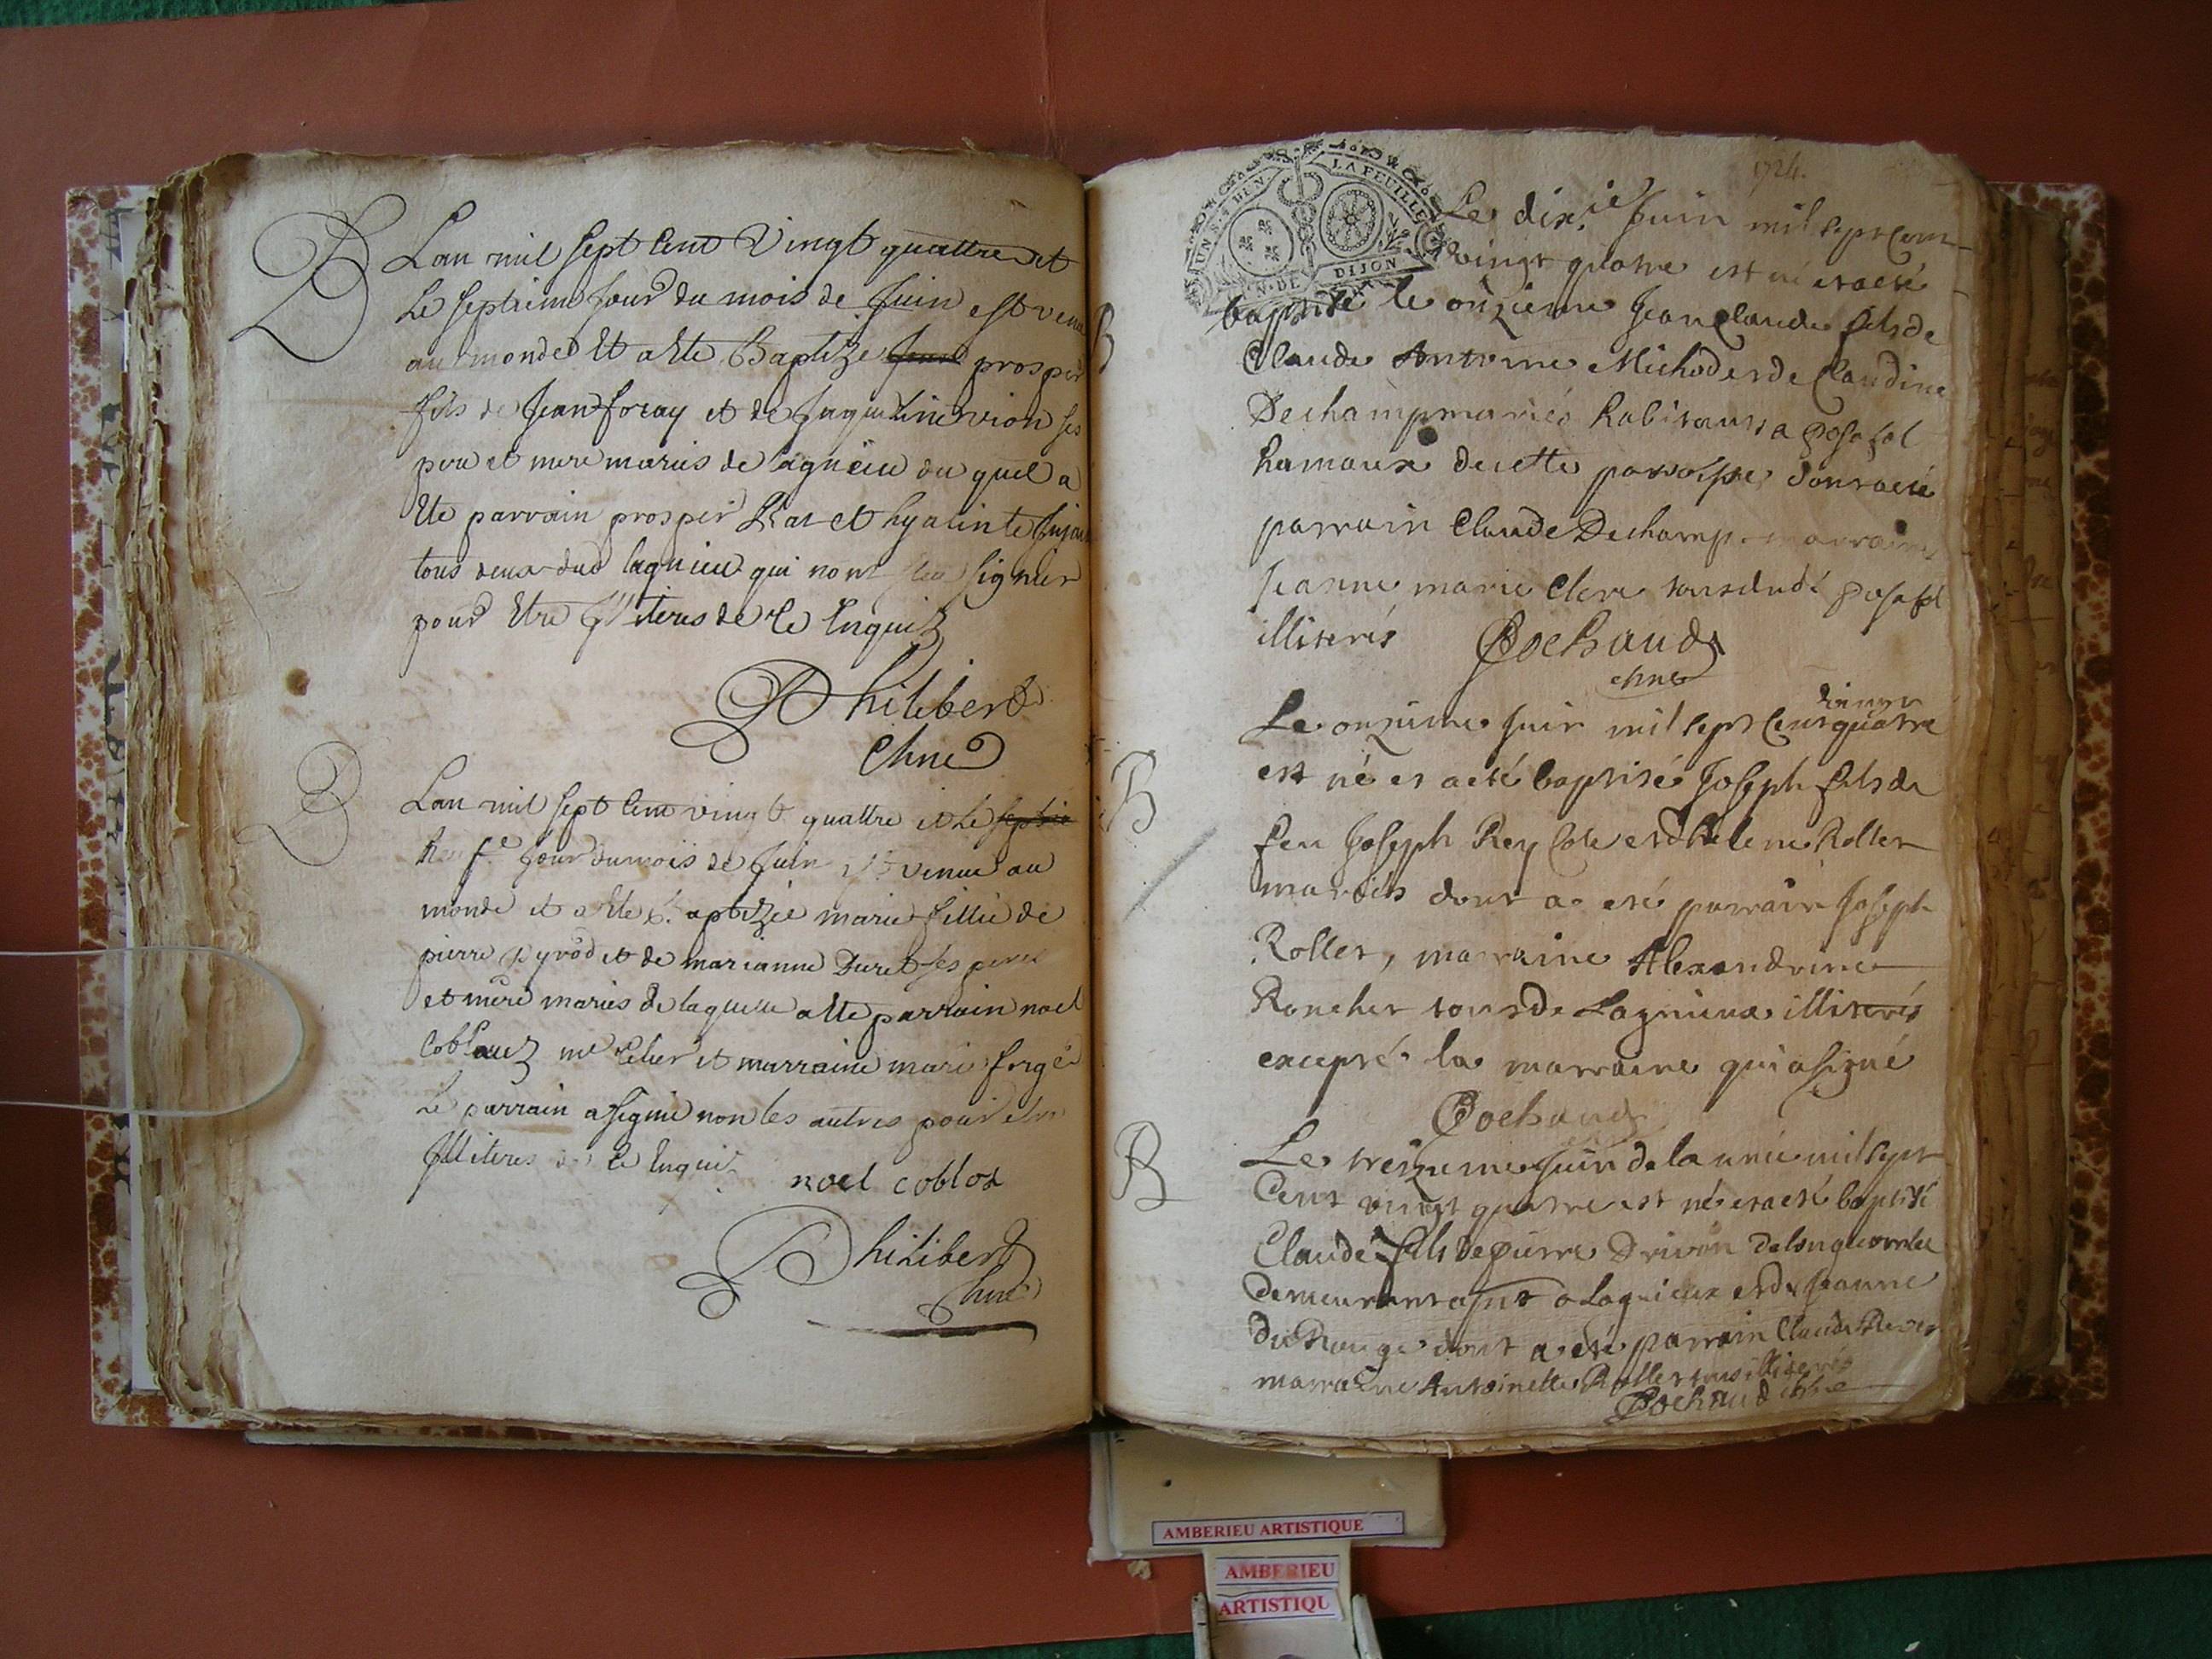 B
Lan mil sept Cent Vingt quattre et
Le septieme Jour du mois de Juin est venu
au monde Et a Ete Baptize prosper
fils de Jean foray et de Jaqueline vion ses
pere et mere maries de lagnieu du quel a
Ete parrain prosper et hyacinte
tous deux dud lagnieu qui nont sceu signer
pour Etre Jlliteres de Ce Enquis
Philibert
Chne
B
Lan mil sept Cent vingt quattre et Le
Jour du mois de Juin est venue au
monde et a Ete Baptizée marie fillie de
pierre et de marianne Duret ses pere
et mere maries de laquelle a Ete parrain noel
et marraine marie forge
Le parrain a signe non les autres pour etre
Jlliteres de Ce Enquis
noel coblox
Philibert
Chne
1724.
UN. S. 4 DEN. LA FEUILLE
DIJON
Le dix.ie Juin mil sept cent
vingt quatre est né et a eté
B
baptisé le onzieme Jean Claude fils de
Claude Antoine Michod et de Claudine
Dechamp mariés habitants a Posafol
hamaux de cette parroisse dont a eté
parrain Claude Dechamp marraine
Jeanne marie Clerc tous dudt posafol
illiterés Pochaud
chne
vingt
Le onzieme Juin mil sept Cent quatre
B
est né et a eté baptisé Joseph fils de
feu Joseph Rey et de helene Rollet
mariés dont a eté parrain Joseph
Rollet, marraine Alexandrine
Roncher tous de Lagnieux illiterés
excepté la marraine qui a signé
Pochaud
B
Le treizieme Juin de la nnée mil sept
Cent vingt quatre est né et a eté baptisé
Claude fils de pierre Drivon
demeurant a Lagnieux et de Jeanne
dont a eté parrain Claude
marraine Antoinette Rollet tous illiterés
Pochaud chne
AMBERIEU ARTISTIQUE
AMBERIEU
ARTISTIQU